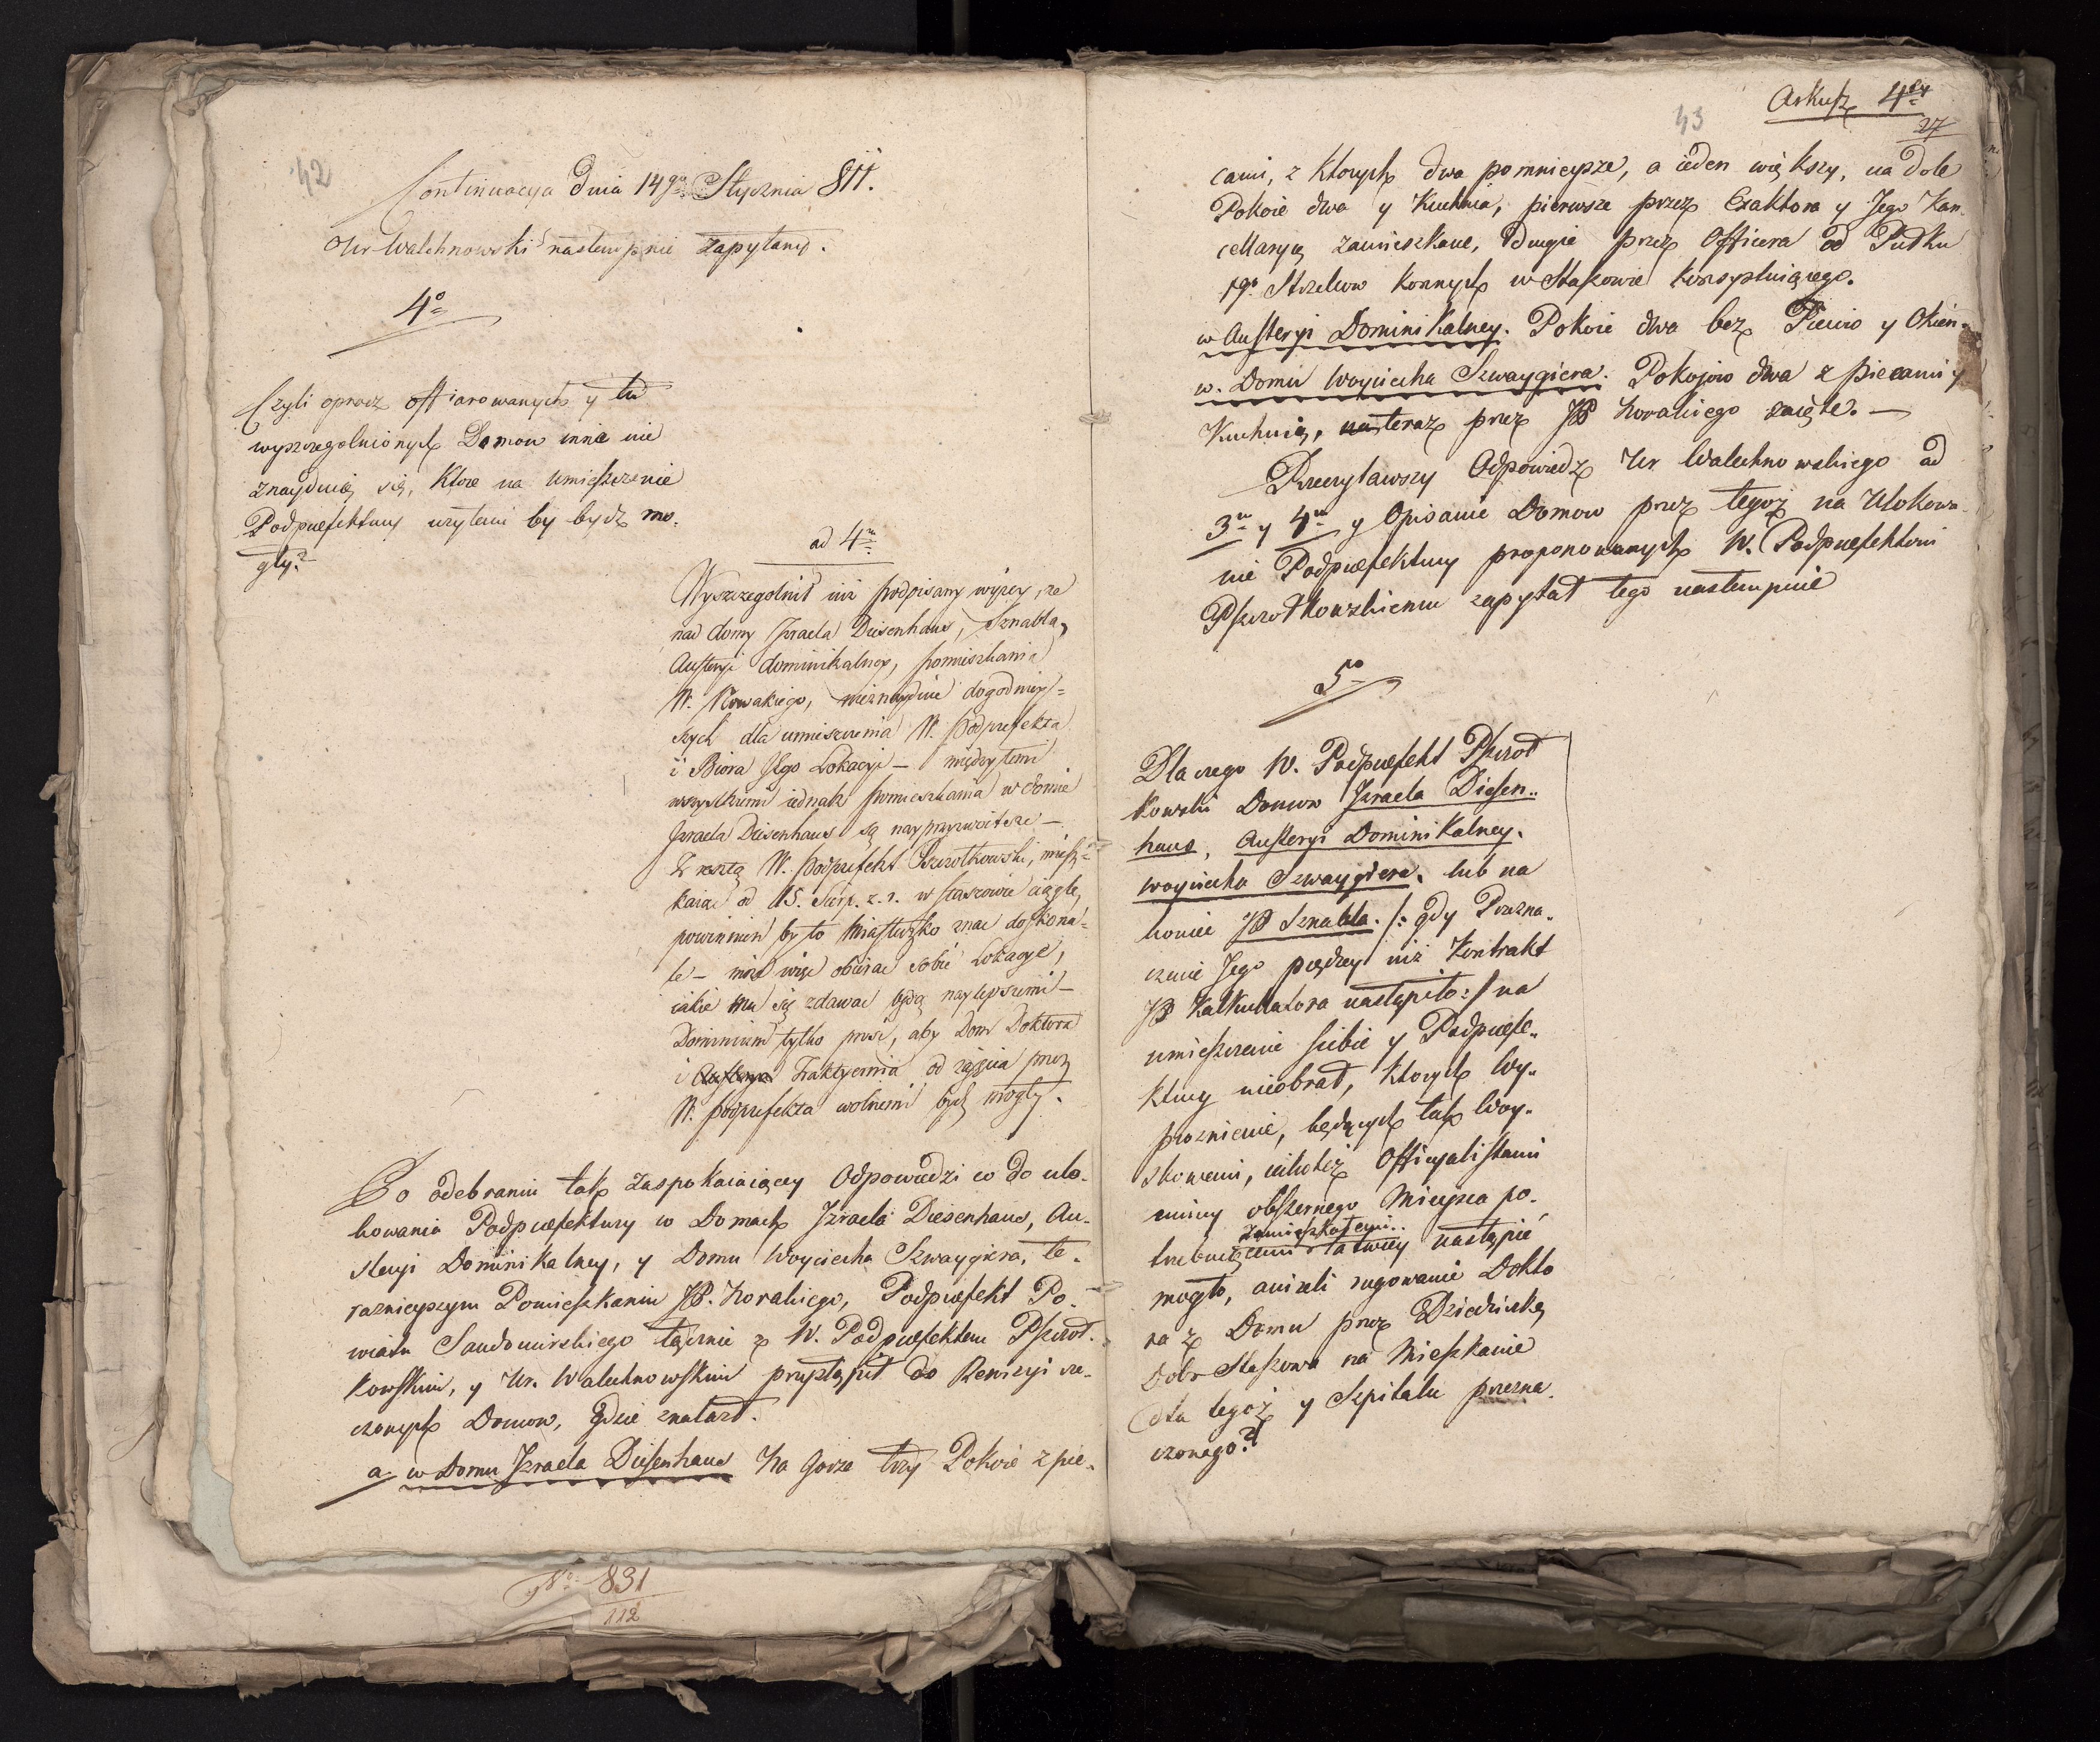 42
Continuacya Dnia 14go Stycznia 811.
Ur Walchnowski nastempnie zapytany.
4o
Czyli oprocz offiarowanych y tu
wyszczegolnionych Domow inne nie
znayduią się, ktore na umieszczenie
Podprefektury użytemi by bydz mo-
gły?
ad 4m
Wyszczegolnił iuż podpisany wyżey, że
nad domy Izraela Diesenhaus, Sznabla,
Austeryi dominikalney, pomieszkania
W. Nowakiego, nieznayduie dogodniey-
szych dla umieszczenia W. Podprefekta
i Biora Jego Lokacyi – między temi
wszystkiemi iednak pomieszkania w domie
Izraela Diesenhaus są nayprzyzwoitsze –
Z resztą W. Podprefekt Pszrotkowski, miesz-
kaiąc od 15. Sierp. z. r. w Staszowie ciągle,
powinien by to Miasteczko znać doskona-
le – może więc obierać sobie Lokacye,
iakie mu się zdawać będą naylepszemi –
Dominium tylko prosi, aby Dom Doktora
i Austerya Traktyernia od zajęcia przez
W. Podprefekta wolnemi bydź mogły.
Po odebraniu tak zaspokaiaiącey Odpowiedzi co do ulo-
kowania Podprefektury w Domach Izraela Diesenhaus, Au-
steryi Dominikalney, y Domu Woyciecha Szwaygiera, te-
raznieyszym Pomieszkaniu JP. Norakiego, Podprefekt Po-
wiatu Sandomirskiego łącznie z W. Podprefektem Pszrot-
kowskim, y Ur. Walchnowskim przystąpił do Rewizyi rze-
czonych Domow, gdzie znalazł.
a. w Domu Izraela Diesenhaus Na Gorze trzy Pokoie z pie-
No 831
112
Arkusz 4ty
43
27
cami, z ktorych dwa pomnieysze, a ieden większy, na dole
Pokoie dwa y Kuchnia, pierwsze przez Exaktora y Jego Kan-
cellaryą zamieszkane, drugie przez Officera od Pułku
1go Strzelcow konnych w Staszowie konsystuiącego.
w Austeryi Dominikalney. Pokoie dwa bez Piecow y Okien.
w. Domu Woyciecha Szwaygiera. Pokojow dwa z piecami y
Kuchnią, na teraz przez JP Norakiego zaięte. –
Przeczytawszy Odpowiedz Ur Walchnowskiego ad
3m y 4m y Opisanie Domow przez tegoż na Ulokowa-
nie Podprefektury proponowanych W. Podprefektowi
Pszrotkowskiemu zapytał tego nastempnie
5o
Dla czego W. Podprefekt Pszrot
kowski Domow Izraela Diesen-
haus, Austeryi Dominikalney.
Woyciecha Szwaygiera. lub na
koniec JP Sznabla. /: gdy Przezna-
czenie Jego prędzey niż Kontrakt
JP Kalkulatora nastąpiło :/ na
umieszczenie siebie y Podprefe-
ktury nieobrał, ktorych Wy-
prożnienie, będących tak Woy-
skowemi, iakoteż Officyalistami
mniey obszernego Mieysca po-
zamieszkałemi..
trzebuiącemi łatwiey nastąpić
mogło, aniżeli rugowanie Dokto
ra z Domu przez Dziedziczkę
Dobr Staszowa na Mieszkanie
dla tegoż y Szpitalu przezna-
czonego?